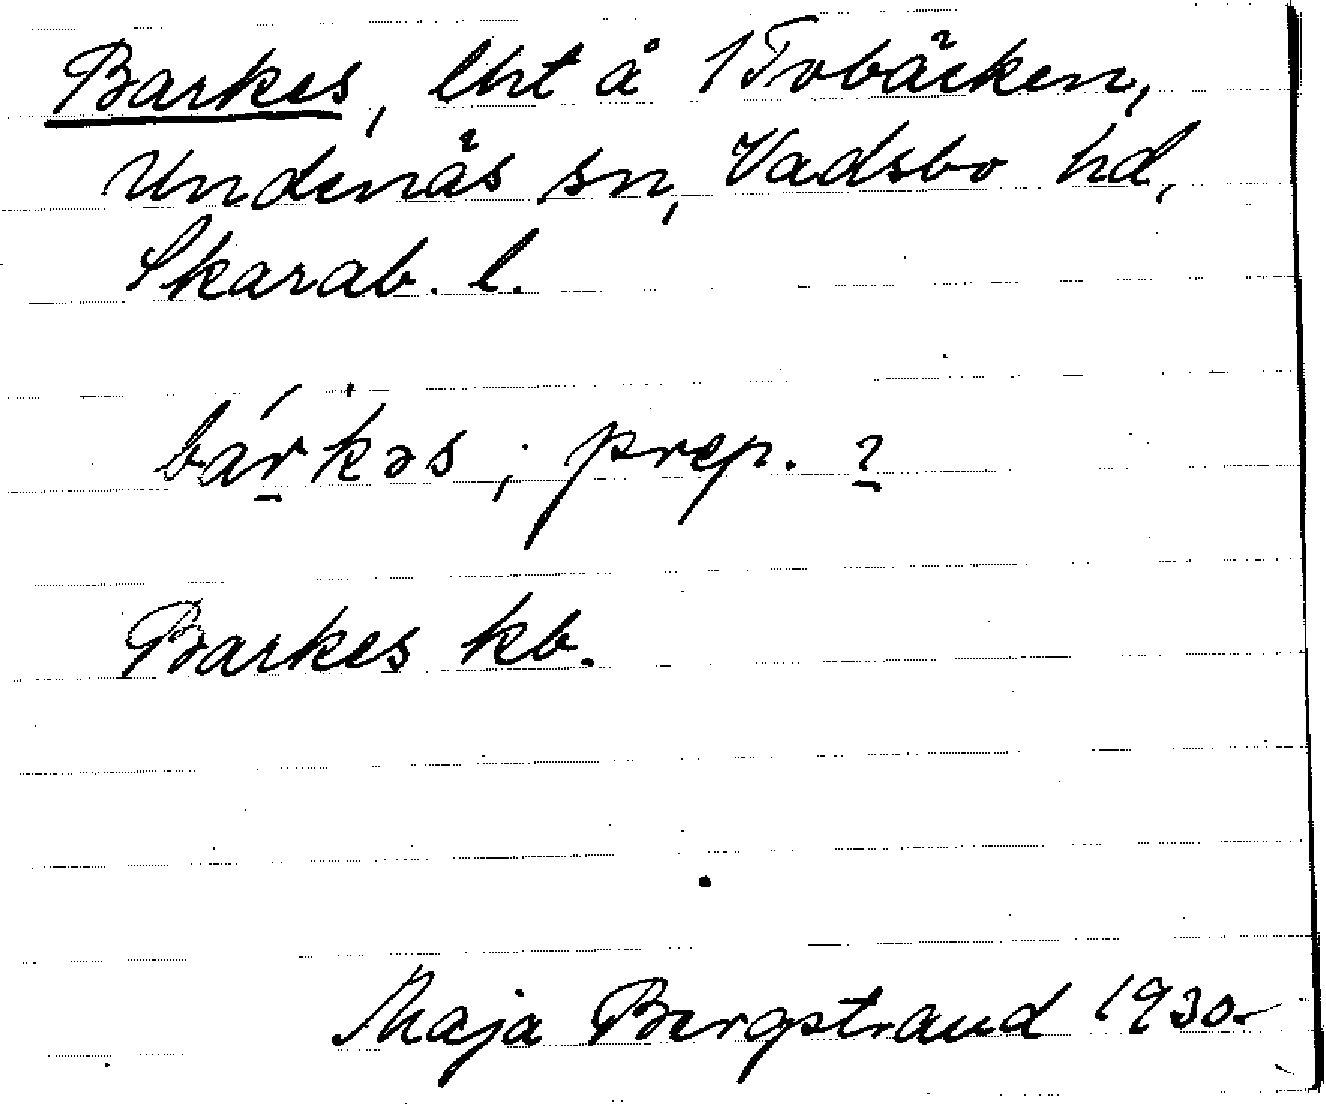 Barkes, lht å 1 Tvbäcken,
Undenäs sn, Vadsbo hd,
Skarab. l.
bárkəs; prep. ?
Barkes kb.
Maja Bergstrand 1930.